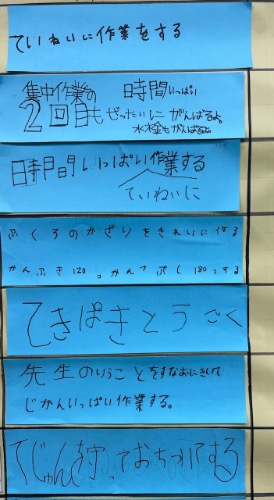 ていねいに作業をする
集中作業の 時間いっぱい
2回目もぜったいに がんばるよ。
水栓もがんばるよ。
日時間いっぱい作業する
ていねいに
ふくろのかざりをきれいに作る
かんぶき120コかんつぶし180コする
てきぱきとうごく
先生のいうことをすなおにきいて
じかんいっぱい作業する。
てじゅんを守っておちついてする